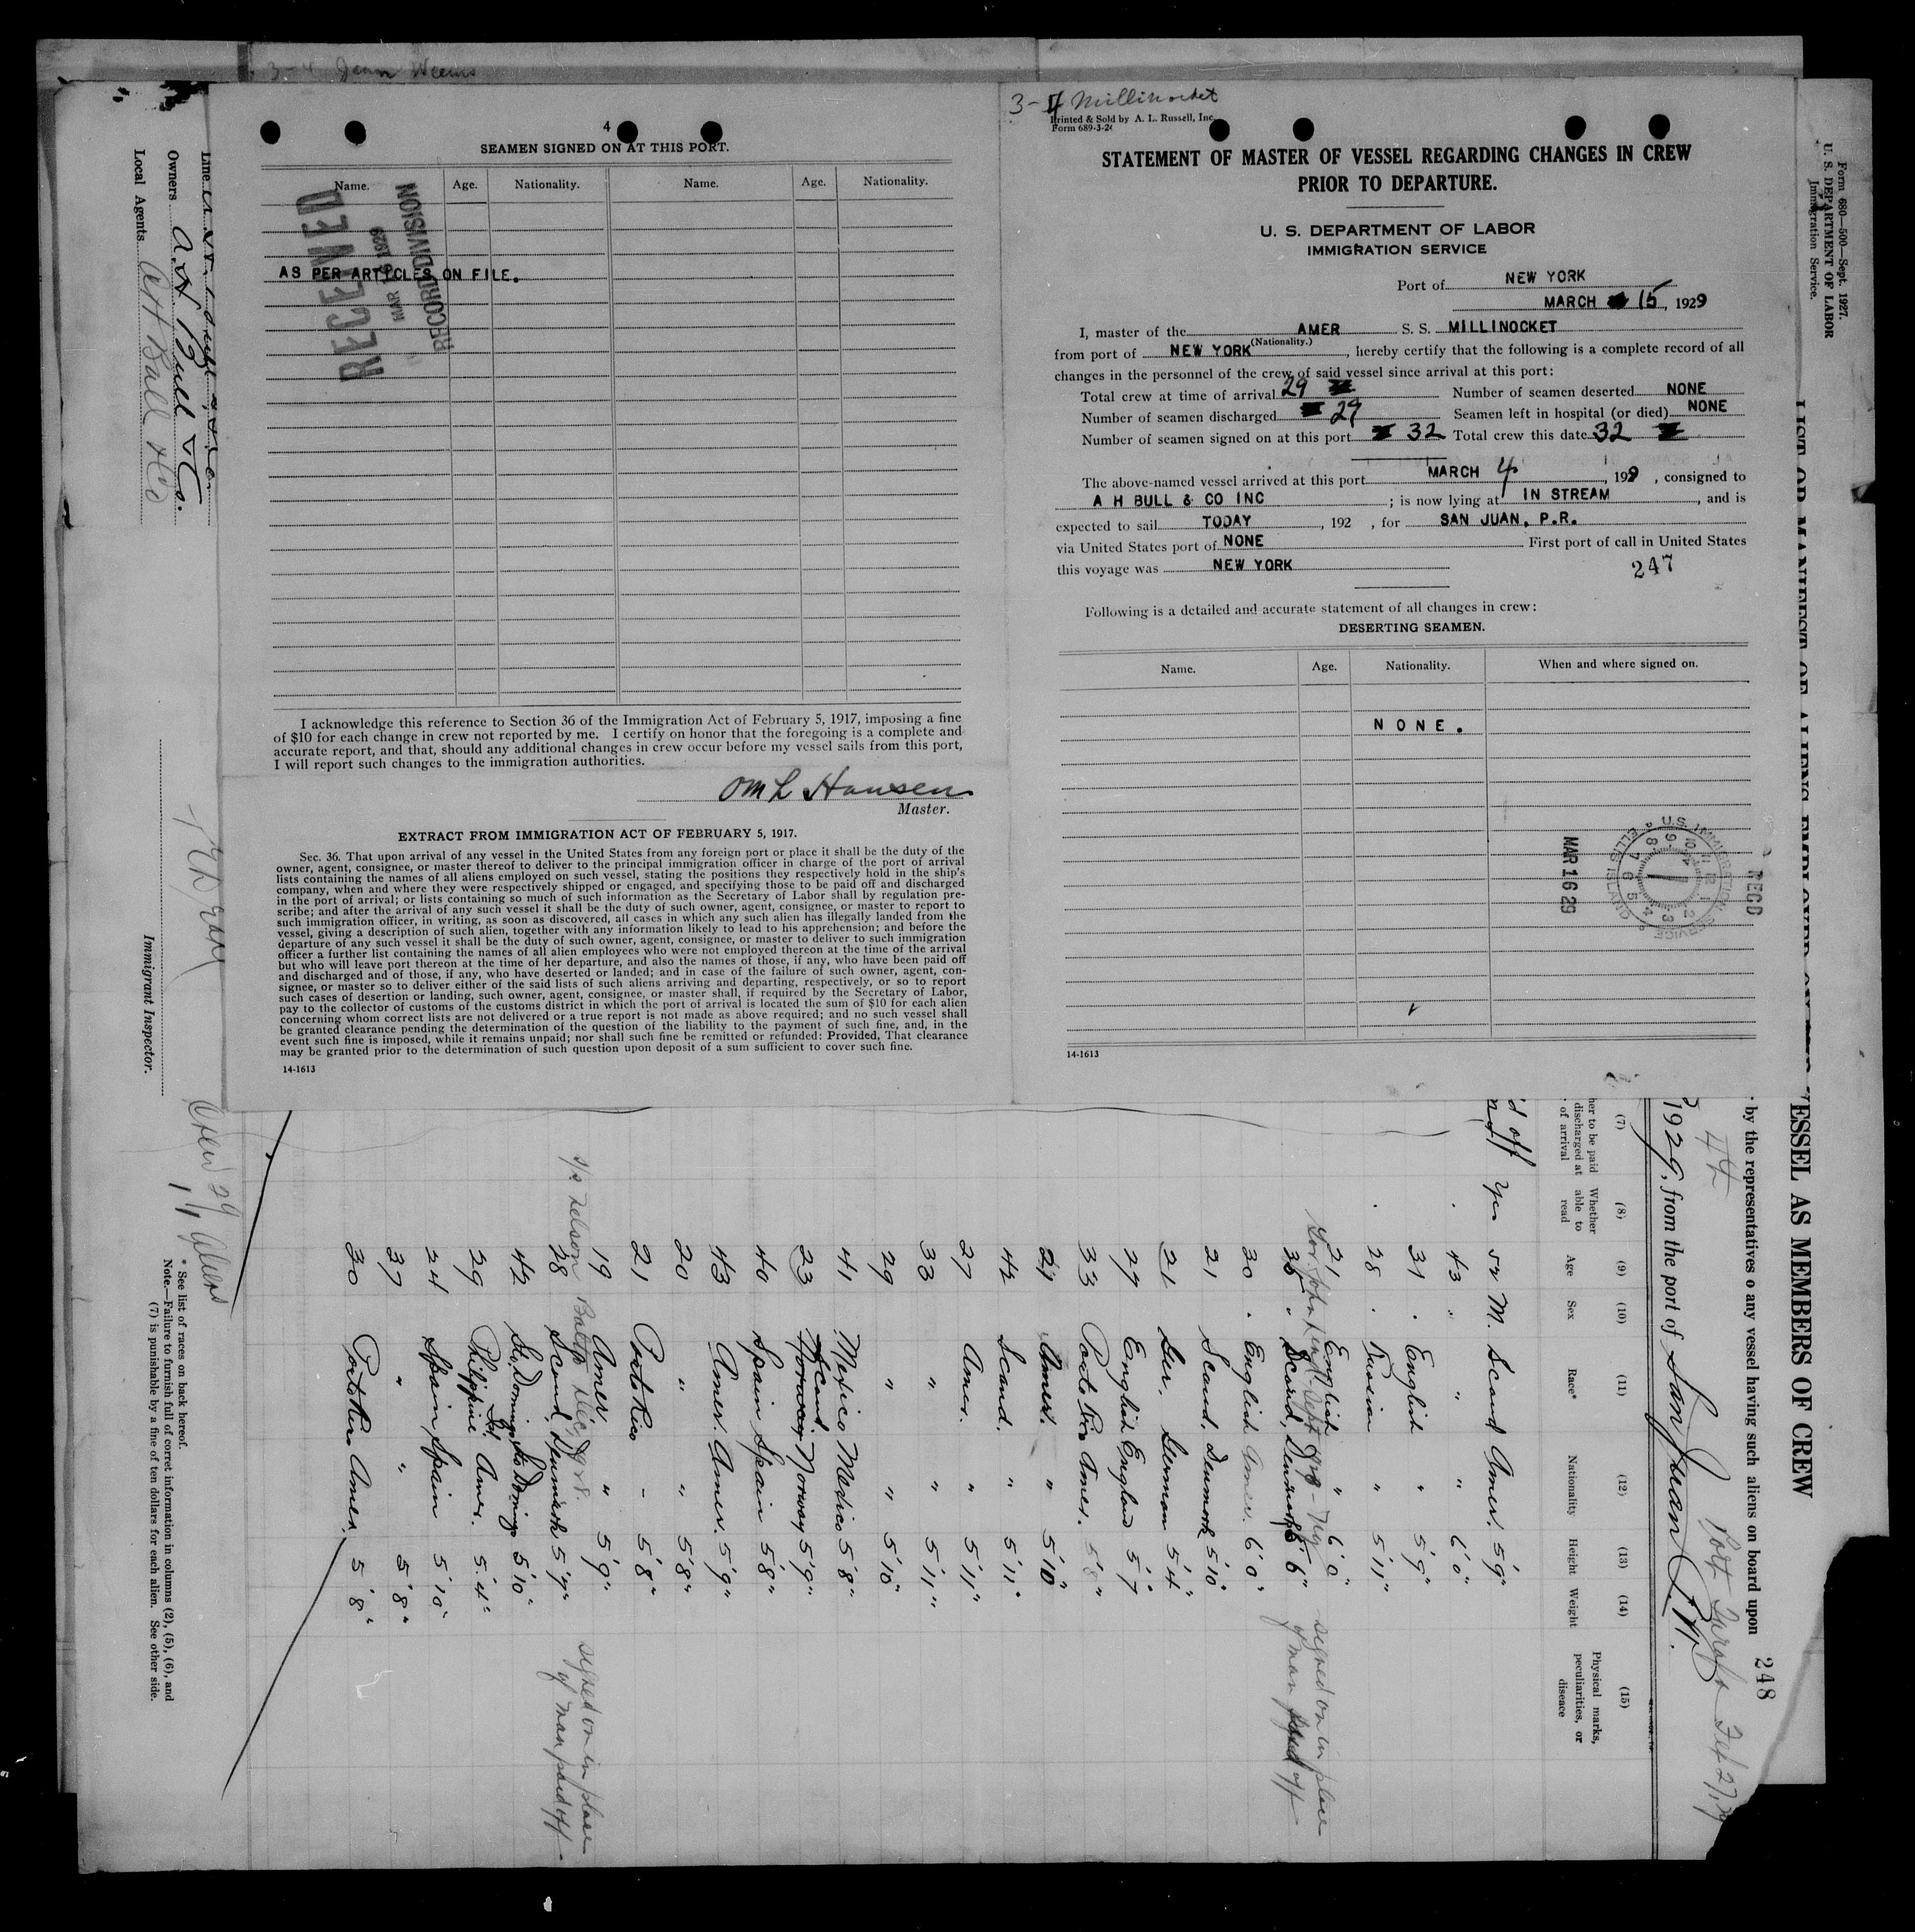 3-4 Jean Weems
4
SEAMEN SIGNED ON AT THIS PORT.
Name. Age. Nationality. Name. Age. Nationality.
RECEIVED
MAR 1929
RECORD DIVISION
AS PER ARTICLES ON FILE.
I acknowledge this reference to Section 36 of the Immigration Act of February 5, 1917, imposing a fine
of $10 for each change in crew not reported by me. I certify on honor that the foregoing is a complete and
accurate report, and that, should any additional changes in crew occur before my vessel sails from this port,
I will report such changes to the immigration authorities.
Om L Hansen
Master.
EXTRACT FROM IMMIGRATION ACT OF FEBRUARY 5, 1917.
Sec. 36. That upon arrival of any vessel in the United States from any foreign port or place it shall be the duty of the
owner, agent, consignee, or master thereof to deliver to the principal immigration officer in charge of the port of arrival
lists containing the names of all aliens employed on such vessel, stating the positions they respectively hold in the ship's
company, when and where they were respectively shipped or engaged, and specifying those to be paid off and discharged
in the port of arrival; or lists containing so much of such information as the Secretary of Labor shall by regulation pre-
scribe; and after the arrival of any such vessel it shall be the duty of such owner, agent, consignee, or master to report to
such immigration officer, in writing, as soon as discovered, all cases in which any such alien has illegally landed from the
vessel, giving a description of such alien, together with any information likely to lead to his apprehension; and before the
departure of any such vessel it shall be the duty of such owner, agent, consignee, or master to deliver to such immigration
officer a further list containing the names of all alien employees who were not employed thereon at the time of the arrival
but who will leave port thereon at the time of her departure, and also the names of those, if any, who have been paid off
and discharged and of those, if any, who have deserted or landed; and in case of the failure of such owner, agent, con-
signee, or master so to deliver either of the said lists of such aliens arriving and departing, respectively, or so to report
such cases of desertion or landing, such owner, agent, consignee, or master shall, if required by the Secretary of Labor,
pay to the collector of customs of the customs district in which the port of arrival is located the sum of $10 for each alien
concerning whom correct lists are not delivered or a true report is not made as above required; and no such vessel shall
be granted clearance pending the determination of the question of the liability to the payment of such fine, and, in the
event such fine is imposed, while it remains unpaid; nor shall such fine be remitted or refunded: Provided, That clearance
may be granted prior to the determination of such question upon deposit of a sum sufficient to cover such fine.
14-1613
3-4 Millinocket
Printed & Sold by A. L. Russell, Inc.
Form 689-3-2
STATEMENT OF MASTER OF VESSEL REGARDING CHANGES IN CREW
PRIOR TO DEPARTURE.
U. S. DEPARTMENT OF LABOR
IMMIGRATION SERVICE
Port of NEW YORK
MARCH 15, 1929
I, master of the AMER S. S. MILLINOCKET
(Nationality.)
from port of NEW YORK, hereby certify that the following is a complete record of all
changes in the personnel of the crew of said vessel since arrival at this port:
Total crew at time of arrival 29 Number of seamen deserted NONE
Number of seamen discharged 29 Seamen left in hospital (or died) NONE
Number of seamen signed on at this port 32 Total crew this date 32
The above-named vessel arrived at this port MARCH 4, 1929, consigned to
A H BULL & CO INC; is now lying at IN STREAM, and is
expected to sail TODAY, 192 , for SAN JUAN, P.R.
via United States port of NONE First port of call in United States
this voyage was NEW YORK
247
Following is a detailed and accurate statement of all changes in crew:
DESERTING SEAMEN.
Name. Age. Nationality. When and where signed on.
NONE.
REC'D
U.S. IMMIGRATION SERVICE ELLIS ISLAND
MAR 16 29
14-1613
Form 680—500—Sept. 1927.
U. S. DEPARTMENT OF LABOR
Immigration Service.
LIST OR MANIFEST OF ALIENS EMPLOYED ON VESSEL AS MEMBERS OF CREW
by the representatives o any vessel having such aliens on board upon
248
1929, from the port of San Juan P.R.
(7) (8) (9) (10) (11) (12) (13) (14) (15)
her to be paid discharged at of arrival
Whether able to read
Age Sex Race* Nationality Height Weight
Physical marks, peculiarities, or disease
Yes 52 M. Scand Amer. 5'9"
43 " " " 6'0"
31 " English " 5'9"
28 " Russian " 5'11"
21 English " 6'0"
signed on in place
of man paid off
36 " Scand, Denmark 5'6"
30 " English Amer. 6'0"
21 Scand, Denmark 5'10"
21 Ger. German 5'4"
27 English England 5'7
33 Porto Rico Amer. 5'8"
27 Amer. " 5'10"
42 Scand. " 5'11"
27 Amer. " 5'11"
33 " " 5'11"
29 " " 5'10"
41 Mexico Mexico 5'8"
23 Scand Norway Norway 5'9"
40 Spain Spain 5'8"
43 Amer. Amer. 5'9"
20 " " 5'8"
21 Porto Rico - 5'8"
19 Amer. " 5'9"
s/s Nelson Balto Dec, 1928.
signed on in place
of man paid off -
28 Scand, Denmark 5'7"
42 Sto. Domingo Sto Domingo 5'10"
29 Philippine Isl. Amer. 5'4"
24 Spain, Spain 5'10"
37 " " 5'8"
30 Porto Rico Amer. 5'8"
Line
Owners A. H Bull & Co.
Local Agents A H Bull & Co
Immigrant Inspector.
Crew 29
11 Aliens
* See list of races on back hereof.
Note.—Failure to furnish full of corret information in columns (2), (5), (6), and
(7) is punishable by a fine of ten dollars for each alien. See other side.